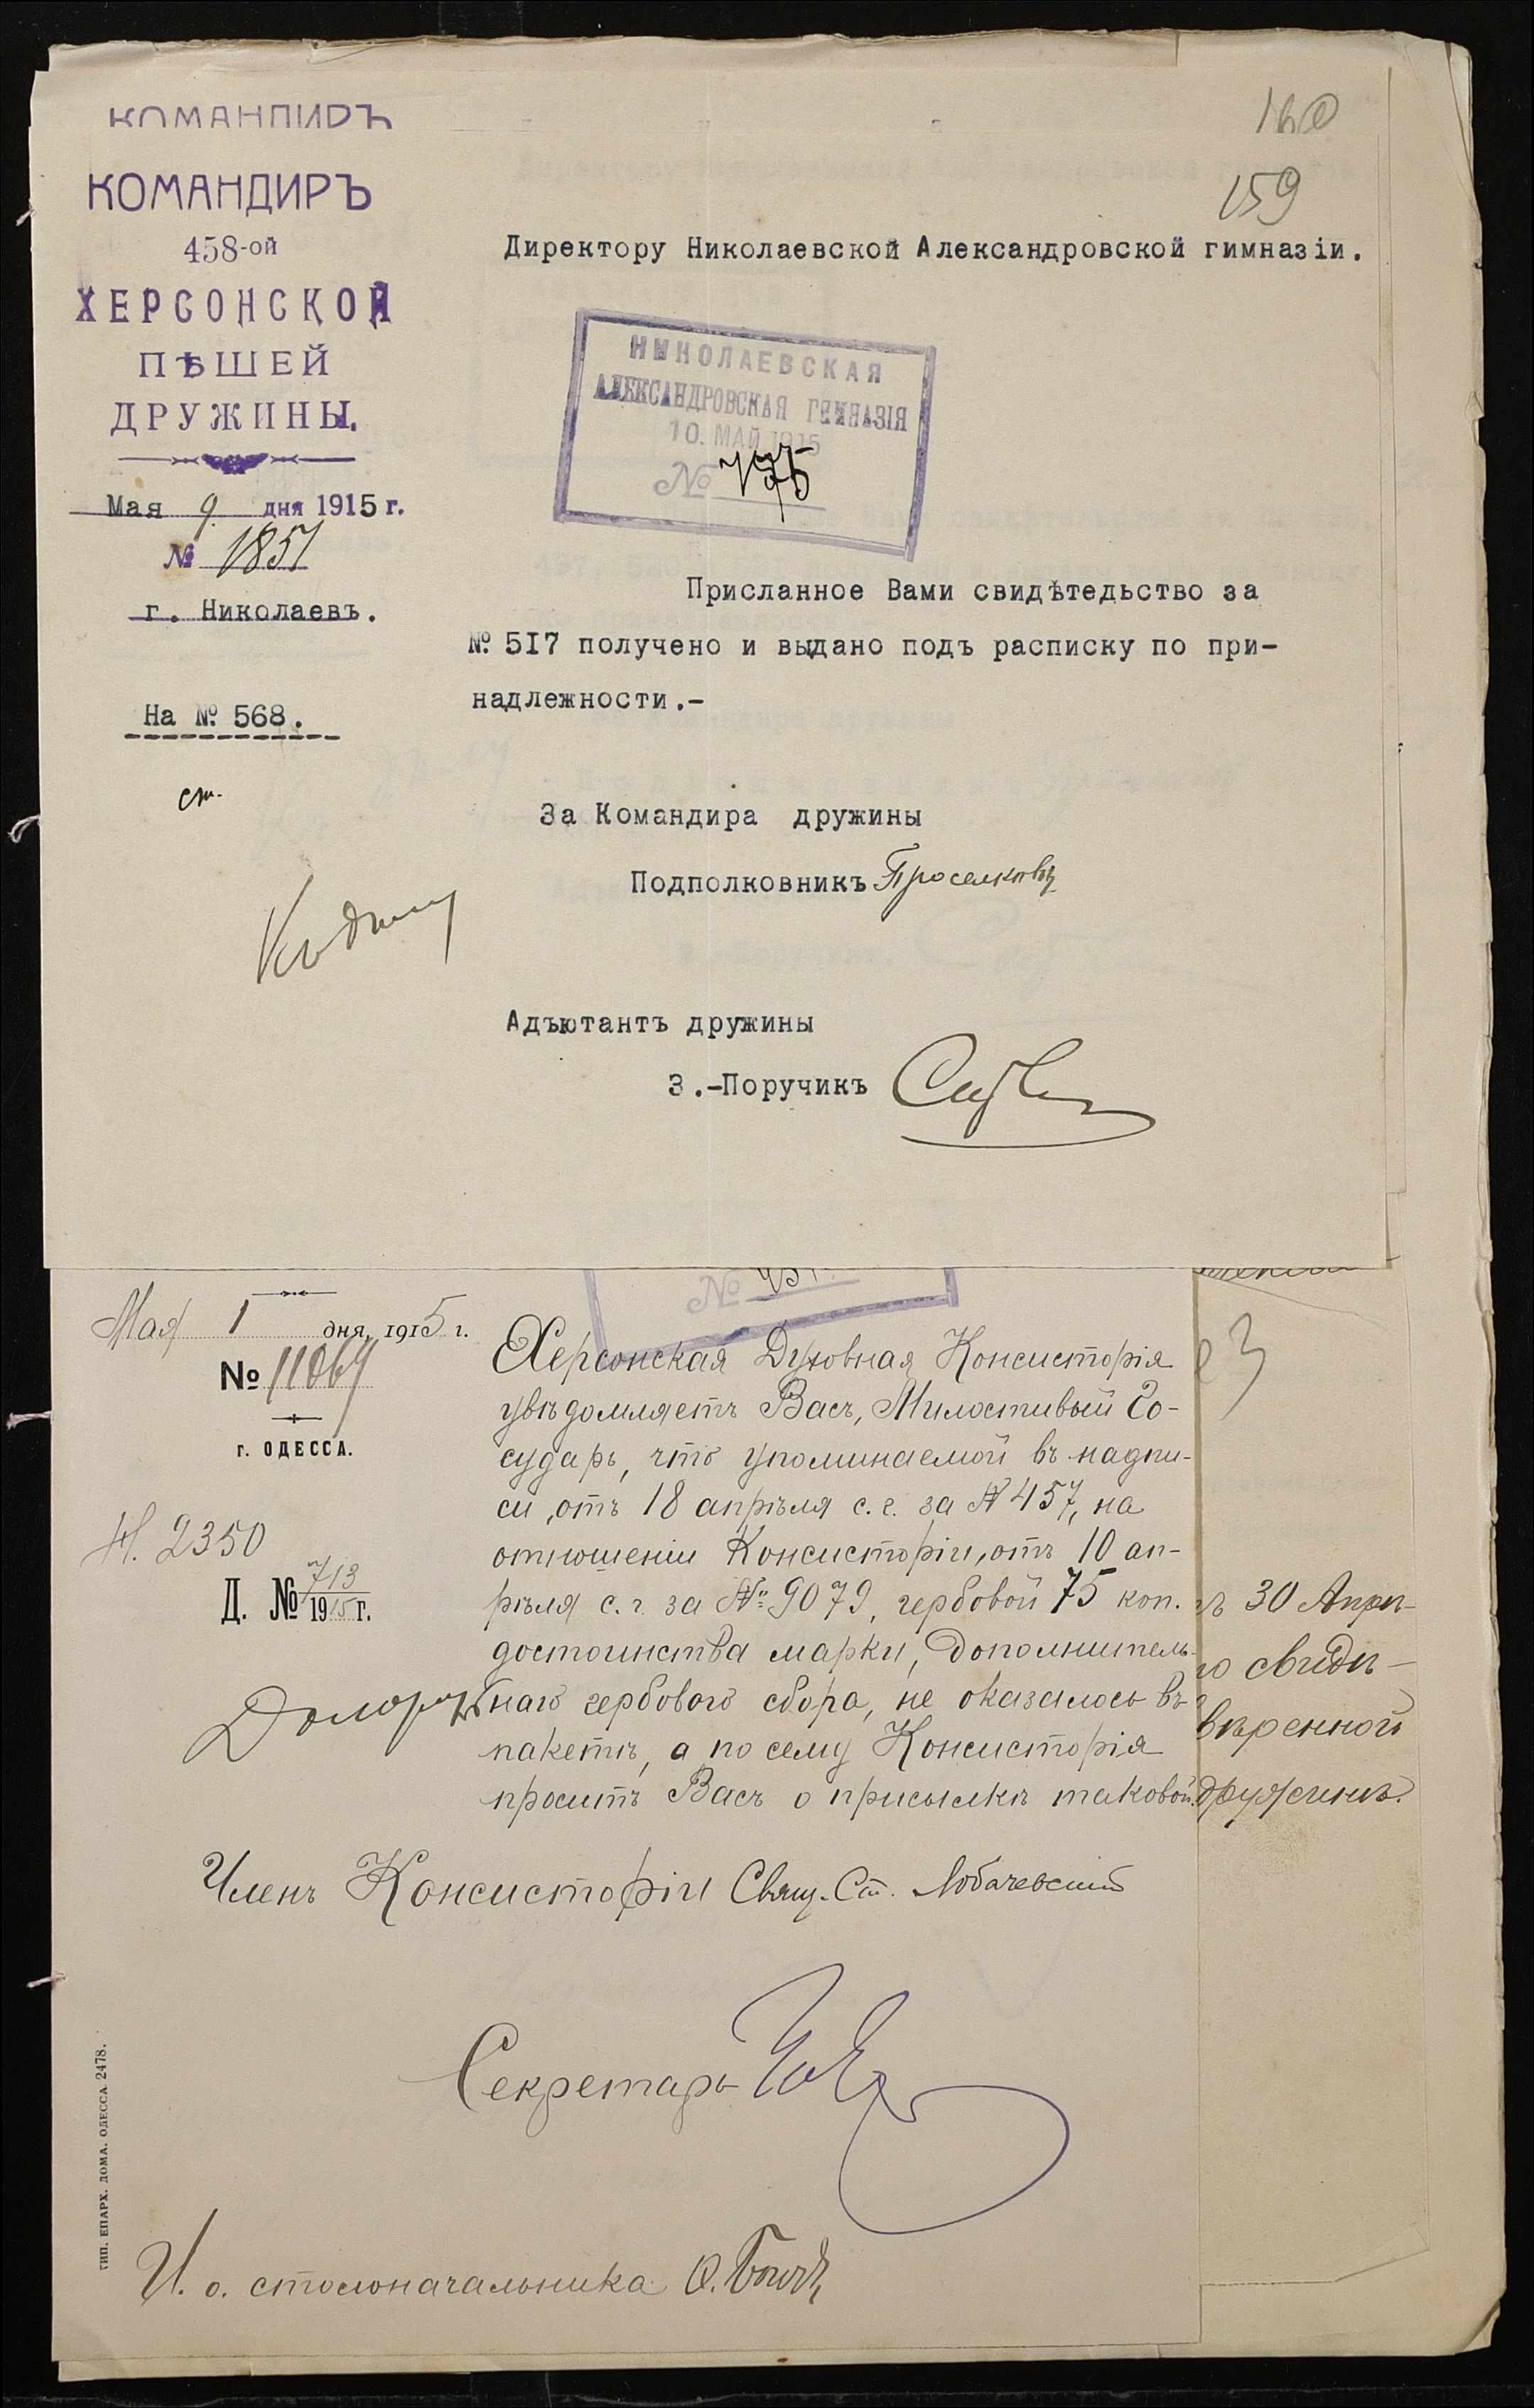 КОМАНДИРЪ
160
159
КОМАНДИРЪ
458-ой
ХЕРСОНСКОЙ
ПѢШЕЙ
ДРУЖИНЫ.
Мая 9 дня 1915 г.
№ 1851
г. Николаевъ.
На № 568.
ст.
Директору Николаевской Александровской гимназіи.
НИКОЛАЕВСКАЯ
АЛЕКСАНДРОВСКАЯ ГИМНАЗІЯ
10. МАЙ 1915
№
Присланное Вами свидѣтедьство за
№ 5I7 получено и выдано подъ расписку по при-
надлежности.-
За Командира дружины
Подполковникъ Проселковъ
Адъютантъ дружины
З.-Поручикъ
Мая 1 дня, 1915 г.
№ 11069
г. ОДЕССА.
Н. 2350
Д. № 713
1915 г.
№
Херсонская Духовная Консисторія
увѣдомляетъ Васъ, Милостивый Го-
сударь, что упоминаемой въ надпи-
си, отъ 18 апрѣля с. г. за № 457, на
отношеніи Консисторіи, отъ 10 ап-
рѣля с. г. за № 9079, гербовой 75 коп.
достоинства марки, дополнитель-
наго гербового сбора, не оказалось въ
пакетѣ, а по сему Консисторія
проситъ Васъ о присылкѣ таковой.
Членъ Консисторіи Свящ. Ст. Лобачевскій
Секретарь
И. о. столоначальника
ТИП. ЕПАРХ. ДОМА. ОДЕССА 2478.
30 Апрѣ-
свидѣ-
ввѣренной
дружинѣ.